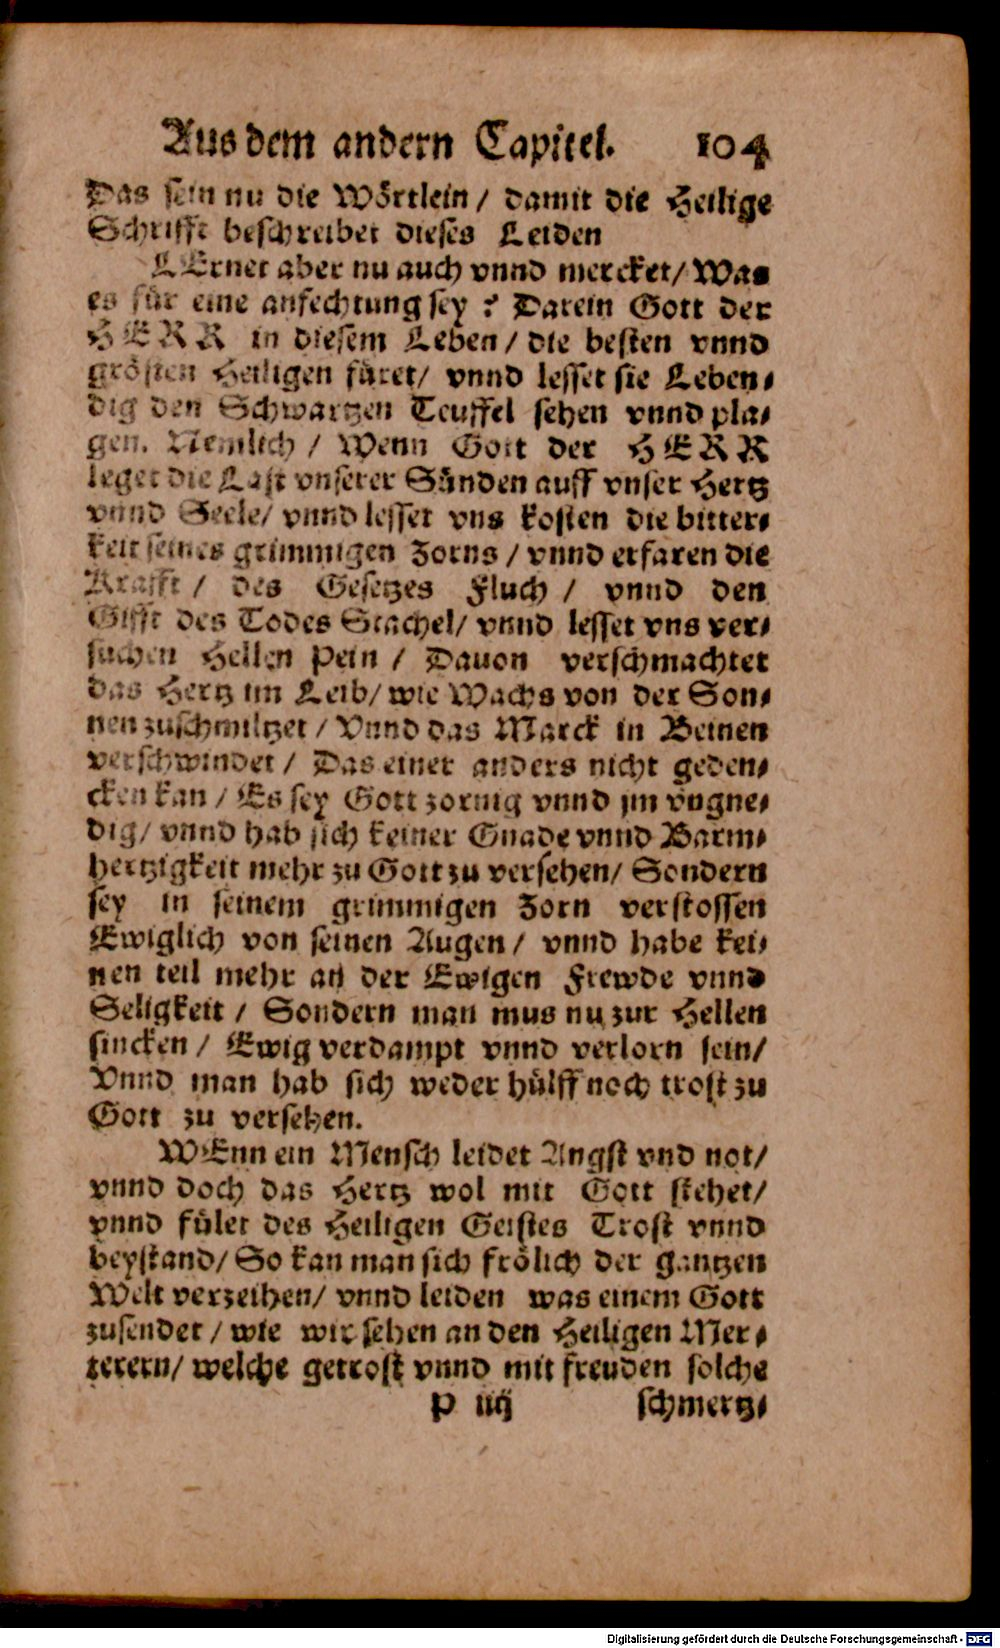 Aus dem andern Capitel. 104
Das sein nu die Wörtlein / damit die Heilige
Schrifft beschreibet dieses Leiden
LErnet aber nu auch vnnd mercket / Was
es für eine anfechtung sey ? Darein Gott der
HERR in diesem Leben / die besten vnnd
grösten Heiligen füret / vnnd lesset sie Leben⸗
dig den Schwartzen Teuffel sehen vnnd pla⸗
gen. Nemlich / Wenn Gott der HERR
leget die Last vnserer Sünden auff vnser Hertz
vnnd Seele / vnnd lesset vns kosten die bitter⸗
keit seines grimmigen Zorns / vnnd erfaren die
Krafft / des Gesetzes Fluch / vnnd den
Gifft des Todes Stachel / vnnd lesset vns ver⸗
suchen Hellen Pein / Dauon verschmachtet
das Hertz im Leib / wie Wachs von der Son⸗
nen zuschmiltzet / Vnnd das Marck in Beinen
verschwindet / Das einer anders nicht geden⸗
cken kan / Es sey Gott zornig vnnd jm vngne⸗
dig / vnnd hab sich keiner Gnade vnnd Barm⸗
hertzigkeit mehr zu Gott zu versehen / Sondern
sey in seinem grimmigen Zorn verstossen
Ewiglich von seinen Augen / vnnd habe kei⸗
nen teil mehr an der Ewigen Frewde vnnd
Seligkeit / Sondern man mus nu zur Hellen
sincken / Ewig verdampt vnnd verlorn sein /
Vnnd man hab sich weder hülff noch trost zu
Gott zu versehen.
WEnn ein Mensch leidet Angst vnd not /
vnnd doch das Hertz wol mit Gott stehet /
vnnd fület des Heiligen Geistes Trost vnnd
beystand / So kan man sich frölich der gantzen
Welt verzeihen / vnnd leiden was einem Gott
zusendet / wie wir sehen an den Heiligen Mer⸗
terern / welche getrost vnnd mit freuden solche
P iiij schmertz⸗
Digitalisierung gefördert durch die Deutsche Forschungsgemeinschaft - DFG